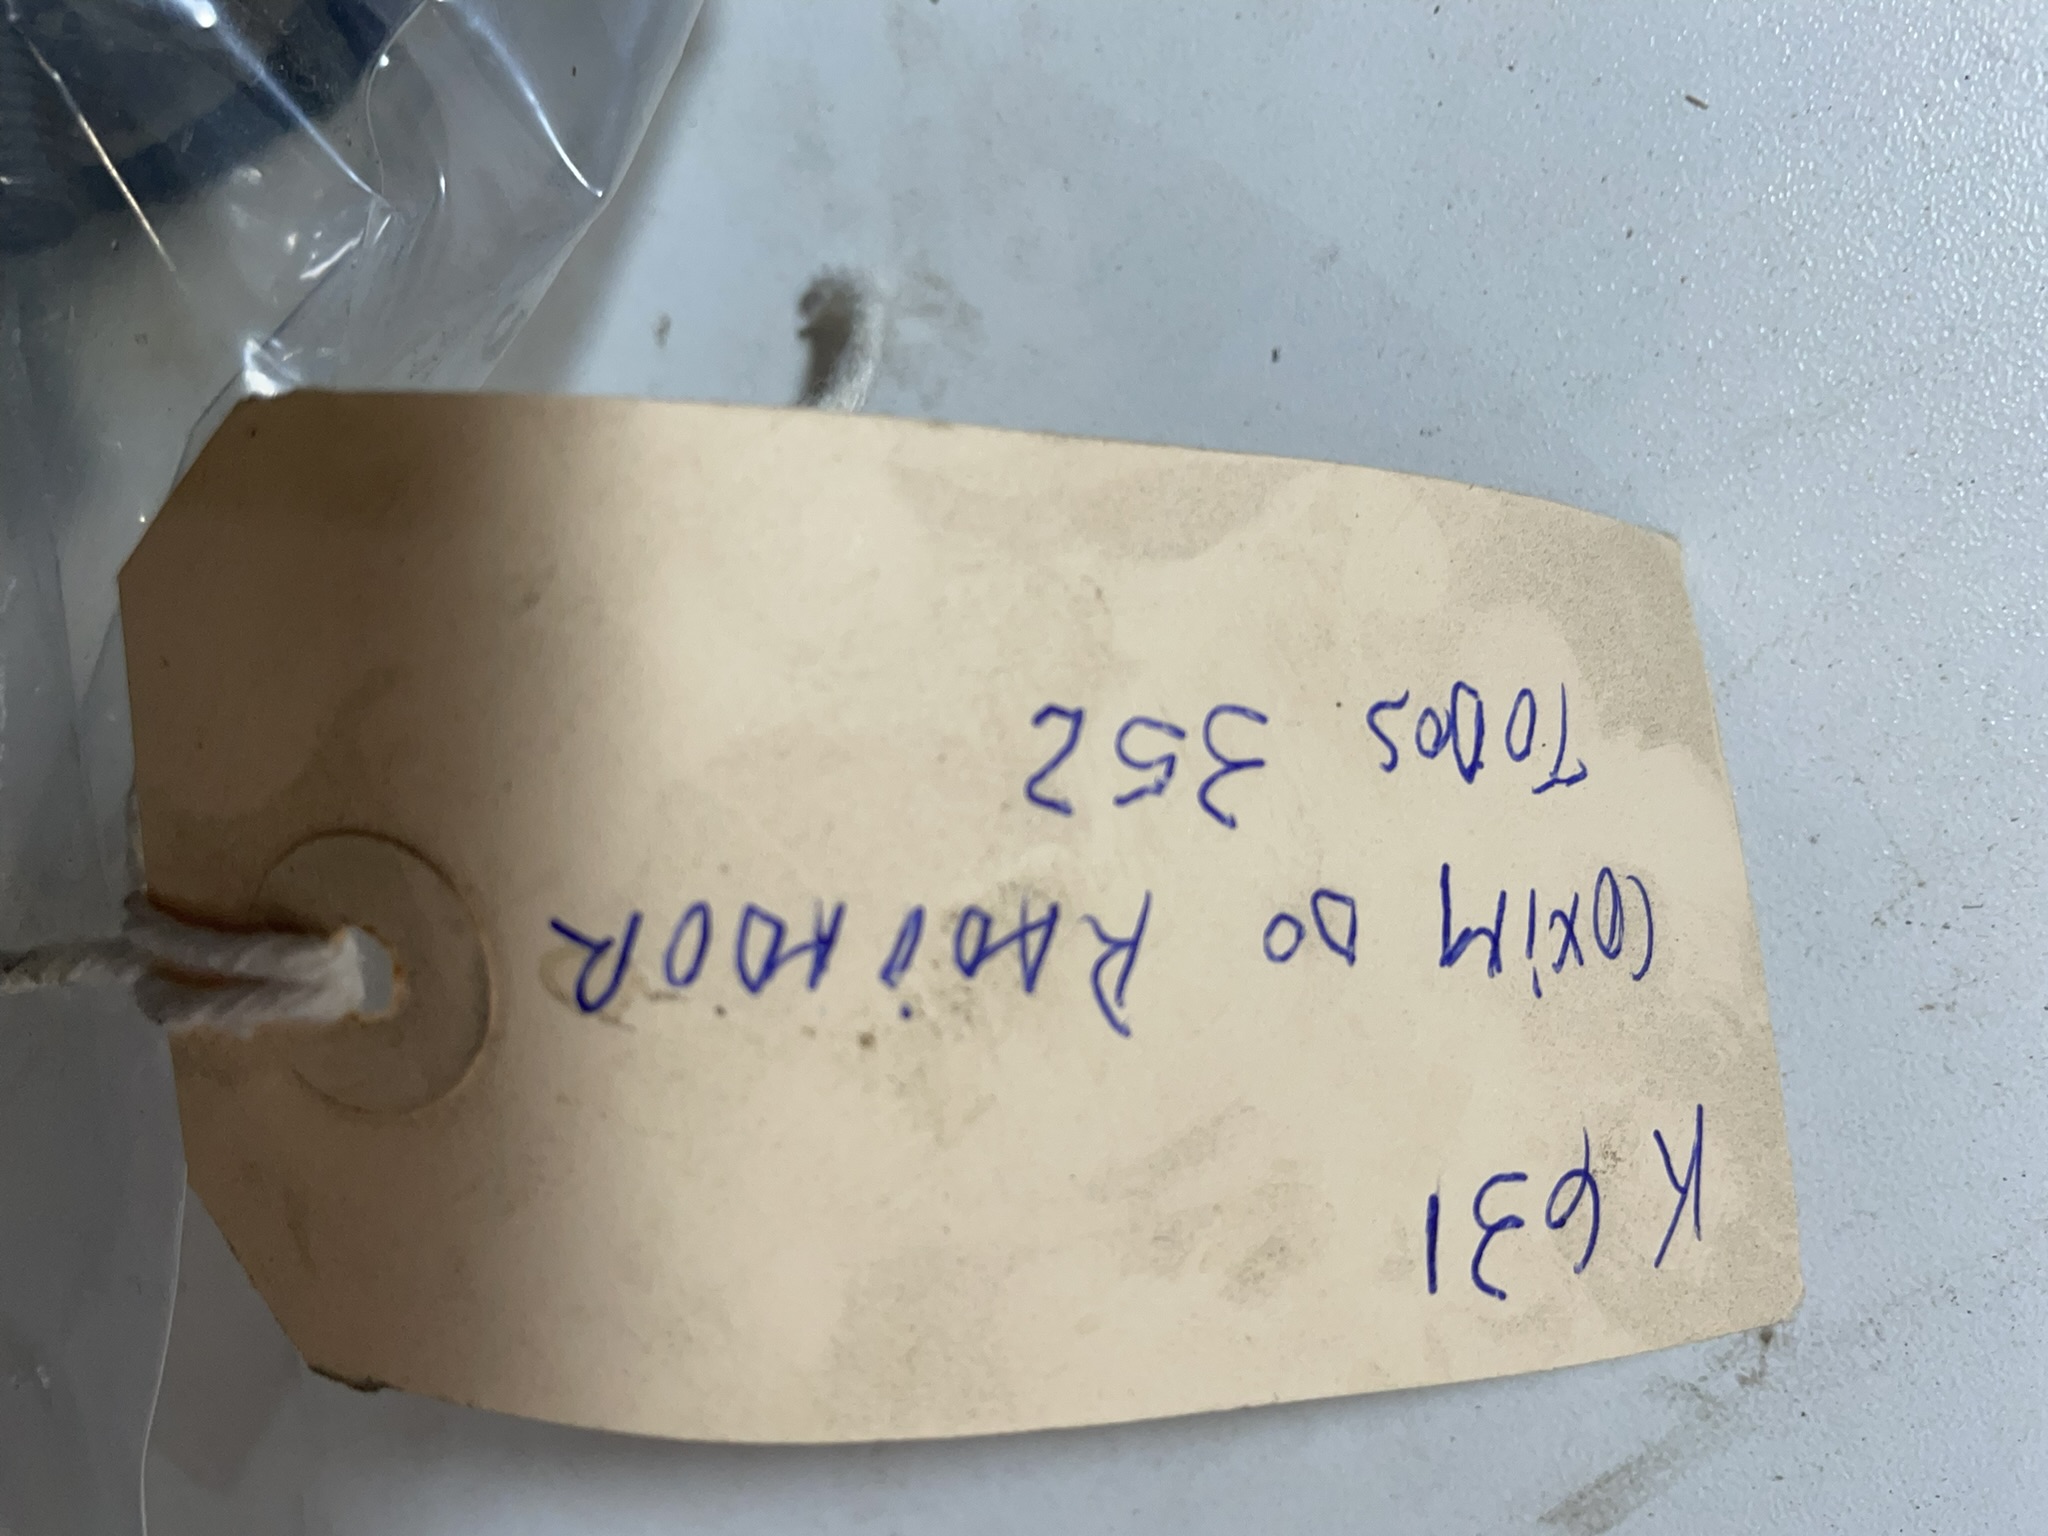 K 631
COXIM DO RADIADOR
TODOS 352